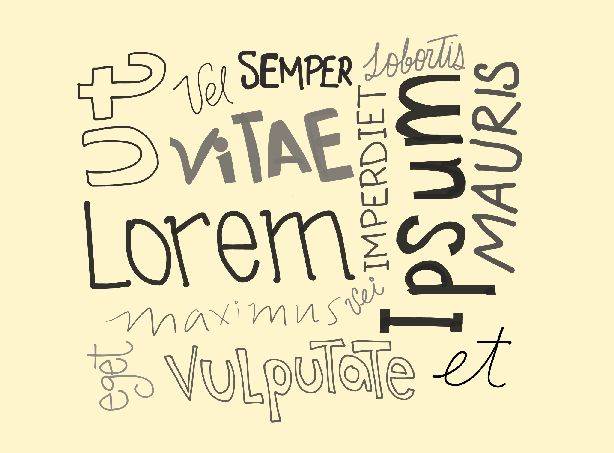 Ut
Vel
SEMPER
Lobortis
ViTAE
IMPERDIET
Ipsum
MAURIS
Lorem
maximus
Vei
eget
VULpuTaTe
et